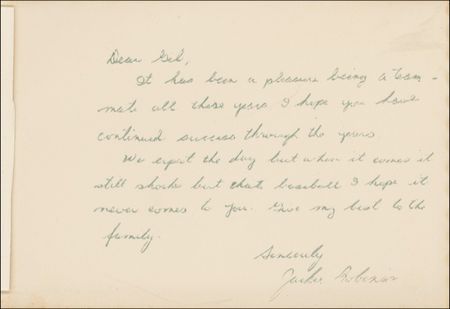 Dear Gil,
It has been a pleasure being a team-
mate all these years I hope you have
continued success through the years.
We expect the day but when it comes it
still shocks but thats baseball I hope it
never comes to you. Give my best to the
family.
Sincerely
Jackie Robinson